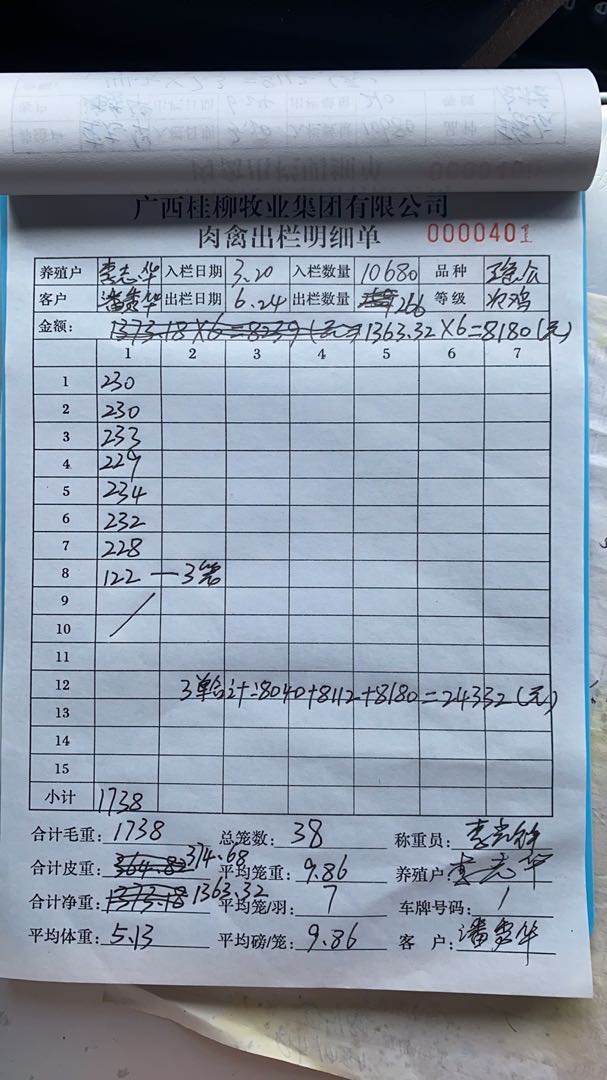 广西桂柳牧业集团有限公司
肉禽出栏明细单 0000401
养殖户 李志华 入栏日期 3.20 入栏数量 10680 品种
客户 潘 华 出栏日期 6.24 出栏数量 266 等级 鸡
金额: 1373.18×6=8239(元) 1363.32×6=8180(元)
1 2 3 4 5 6 7
1 230
2 230
3 233
4 229
5 234
6 232
7 228
8 122 — 3笼
9
10
11
12 3单合计:8040+8112+8180=24332(元)
13
14
15
小计 1738
合计毛重: 1738 总笼数: 38 称重员: 李
合计皮重: 364.82 374.68 平均笼重: 9.86 养殖户 李志华
合计净重: 1373.18 1363.32 平均笼/羽: 7 车牌号码: 1
平均体重: 5.13 平均磅/笼: 9.86 客 户: 潘 华